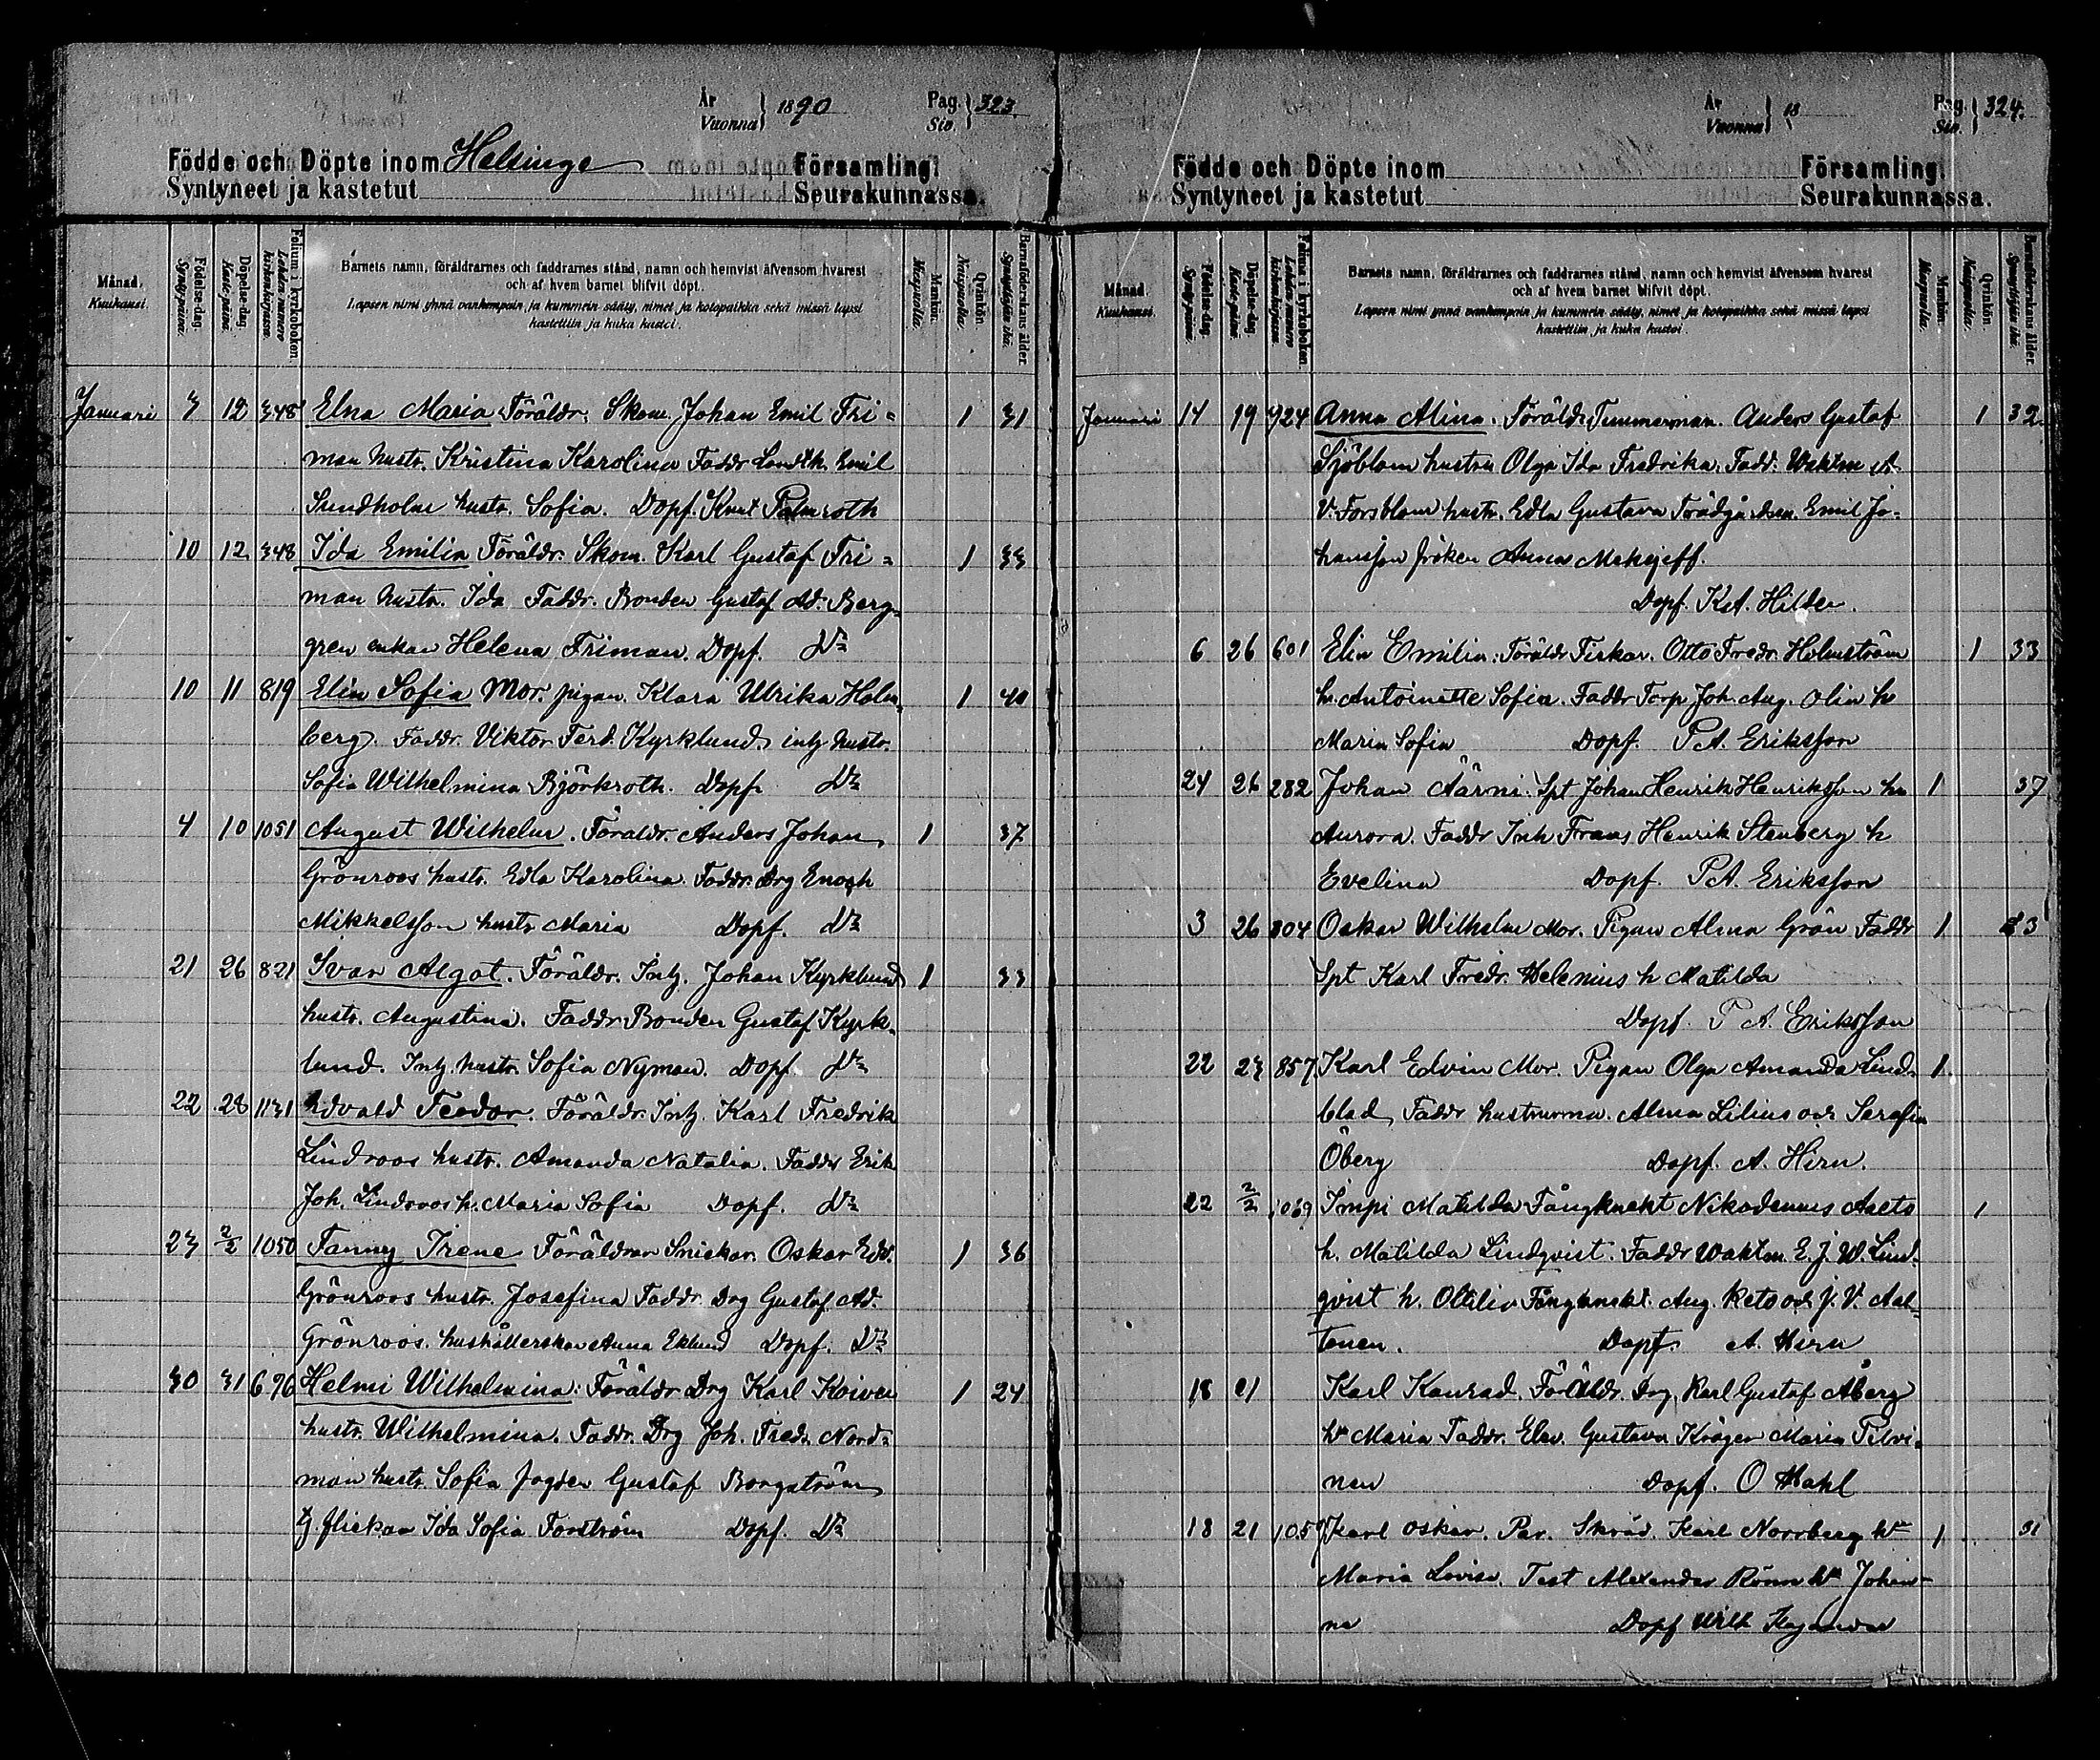 År Vuonna } 1890 Pag. Siv. } 323.
Födde och Döpte inom Helsinge Församling.
Syntyneet ja kastetut Seurakunnassa.
Månad. Kuukausi.
Födelse-dag. Synty-päivä.
Döpelse-dag. Kaste-päivä.
Folium i kyrkoboken. Lehden numero kirkonkirjassa.
Barnets namn, föräldrarnes och faddrarnes stånd, namn och hemvist äfvensom hvarest
och af hvem barnet blifvit döpt.
Lapsen nimi ynnä vanhempain ja kummein sääty, nimet ja kotopaikka sekä missä lapsi
kastettiin ja kuka kastoi.
Mankön. Miespuolta.
Qvinkön. Naispuolta.
Barnaföderskans ålder. Synnyttäjän ikä.
Januari 7 12 348 Elna Maria Föräldr. Skom. Johan Emil Fri= 1 31
man hustr. Kristina Karolina Faddr Landtk. Emil
Sundholm hustr. Sofia. Dopf. Knut Palmroth
10 12 348 Ida Emilia Föräldr. Skom. Karl Gustaf Fri= 1 33
man hustr. Ida Faddr. Bonden Gustaf Ad. Berg=
gren enkan Helena Friman. Dopf. Do
10 11 819 Elin Sofia Mor. pigan Klara Ulrika Holm= 1 40
berg. Faddr. Viktor Ferd. Kyrklund, inh hustr.
Sofia Wilhelmina Björkroth. Dopf. Do
4 10 1051 August Wilhelm. Föräldr. Anders Johan 1 37
Grönroos hustr. Edla Karolina. Faddr. Drg Enoch
Mikkelsson hustr Maria Dopf. Do
21 26 821 Ivar Algot. Föräldr. Inh. Johan Kyrklund 1 33
hustr. Augustina. Faddr Bonden Gustaf Kyrk=
lund. Inh. hustr. Sofia Nyman. Dopf. Do
22 28 1131 Edvald Teodor. Föräldr. Inh. Karl Fredrik
Lindroos hustr. Amanda Natalia. Faddr Erik
Joh. Lindroos h. Maria Sofia Dopf. Do
23 2/2 1050 Fanny Irene Föräldrar Snickar. Oskar Edv. 1 36
Grönroos hustr. Josefina Faddr. Drg Gustaf Ad.
Grönroos. hushållerskan Anna Eklund Dopf. Do
30 31 696 Helmi Wilhelmina: Föräldr Drg Karl Koiven 1 24
hustr. Wilhelmina. Faddr. Drg Joh. Fredr. Nord=
man hustr. Sofia Jogden Gustaf Borgström
flickan Ida Sofia Forström Dopf. Do
År Vuonna } 18 Pag. Siv. } 324.
Födde och Döpte inom Församling.
Syntyneet ja kastetut Seurakunnassa.
Månad. Kuukausi.
Födelse-dag. Synty-päivä.
Döpelse-dag. Kaste-päivä.
Folium i kyrkoboken. Lehden numero kirkonkirjassa.
Barnets namn, föräldrarnes och faddrarnes stånd, namn och hemvist äfvensom hvarest
och af hvem barnet blifvit döpt.
Lapsen nimi ynnä vanhempain ja kummein sääty, nimet ja kotopaikka sekä missä lapsi
kastettiin ja kuka kastoi.
Mankön. Miespuolta.
Qvinkön. Naispuolta.
Barnaföderskans ålder. Synnyttäjän ikä.
Januari 14 19 924 Anna Alina. Föräldr. Timmerman. Anders Gustaf 1 32
Sjöblom hustru Olga Ida Fredrika. Fadd. Waktm A.
V. Forsblom hustr. Edla Gustava Trädgårdsm. Emil Jo=
hansson fröken Anna Mekejeff.
Dopf. K.A. Hilden.
6 26 601 Elin Emilia. Föräldr Fiskar. Otto Fredr. Holmström 1 33
h. Antoinette Sofia. Faddr Torp Joh. Aug. Olin h
Maria Sofia Dopf. P.A. Eriksson
24 26 282 Johan Äärni. Spt Johan Henrik Henriksson hu 1 37
Aurora. Faddr Inh Frans Henrik Stenberg h
Evelina Dopf. P.A. Eriksson
3 26 804 Oskar Wilhelm Mor. Pigan Alma Grön Faddr 1 3
Spt Karl Fredr. Helenius h Matilda
Dopf. P A. Eriksson
22 23 857 Karl Edvin Mor. Pigan Olga Amanda Lind= 1
blad, Faddr hustrurna. Alma Lilius och Serafia
Öberg Dopf. A. Hirn.
22 2/2 1069 Impi Matilda Fångknekt Nikodemus Aaeto 1
h. Matilda Lindqvist. Faddr Waktm. E. J. W. Lind=
qvist h. Otilia Fångknekt. Aug. Keto och J. V. Aal=
tonen. Dopf. A. Hirn
18 21 Karl Konrad. Föräldr. Drg. Karl Gustaf Åberg
hu Maria Faddr. Elev. Gustava Kröger Maria Tilvi=
nen Dopf. O Mahl
18 21 1059 Karl Oskar. Par. Skräd. Karl Norrberg hu 1 31
Maria Lovisa. Test Alexander Rönn hu Johan=
na Dopf Wilh Kajander